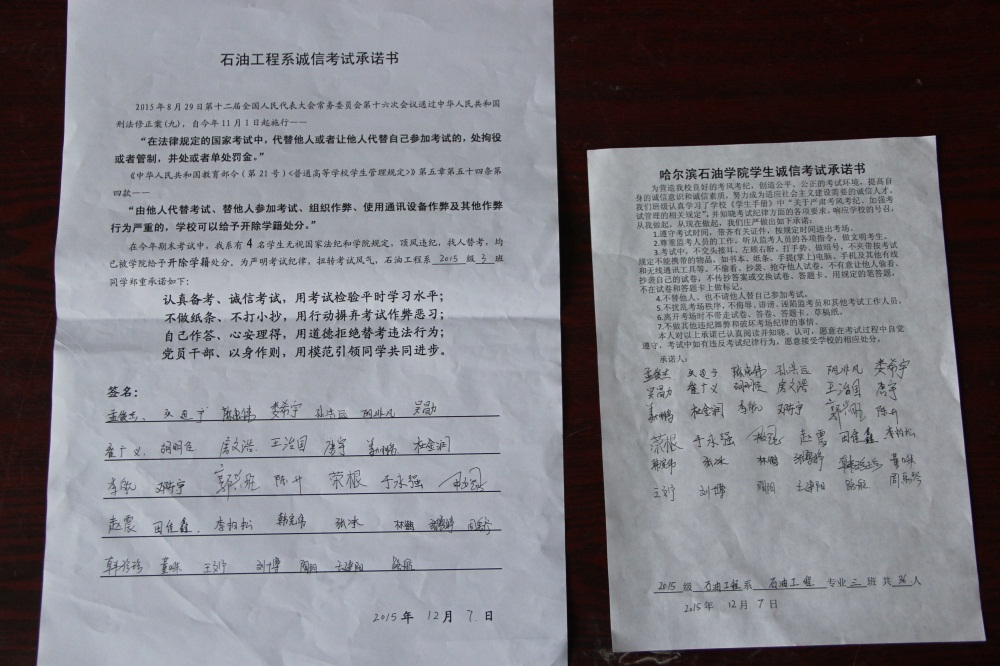 石油工程系诚信考试承诺书
2015年8月29日第十二届全国人民代表大会常务委员会第十六次会议通过中华人民共和国
刑法修正案(九),自今年11月1日起施行——
“在法律规定的国家考试中,代替他人或者让他人代替自己参加考试的,处拘役
或者管制,并处或者单处罚金。”
《中华人民共和国教育部令(第21号)<普通高等学校学生管理规定>》第五章第五十四条第
四款——
“由他人代替考试、替他人参加考试、组织作弊、使用通讯设备作弊及其他作弊
行为严重的,学校可以给予开除学籍处分。”
在今年期末考试中,我系有4名学生无视国家法纪和学院规定,顶风违纪,找人替考,均
已被学院给予开除学籍处分。为严明考试纪律,扭转考试风气,石油工程系 2015 级 3 班
同学郑重承诺如下:
认真备考、诚信考试,用考试检验平时学习水平;
不做纸条、不打小抄,用行动摒弃考试作弊恶习;
自己作答、心安理得,用道德拒绝替考违法行为;
党员干部、以身作则,用模范引领同学共同进步。
签名:
娄希宇 孙学臣 阴非凡 吴勋
崔广义 胡明俭 席文浩 王治国 唐宇 杜金润
李敏 邓陈宇 郭兴龍 陈升 荣根 于永强
赵震 田佳鑫 李柏松 韩宪伟 张冰 林鹏
韩珍珍 董咪 王列宁 刘博 周阳 王建阳
2015年 12月 7日
哈尔滨石油学院学生诚信考试承诺书
为营造我校良好的考风考纪,创造公平、公正的考试环境,提高自
身的诚信意识和诚信素质,努力成为适应社会主义建设需要的诚信人才。
我们班级认真学习了学校《学生手册》中“关于严肃考风考纪、加强考
试管理的相关规定”,并知晓考试纪律方面的各项要求,响应学校的号召,
从我做起,从现在做起,我们庄严做出如下承诺:
1.遵守考试时间,带齐有关证件,按规定时间进出考场。
2.尊重监考人员的工作。听从监考人员的各项指令,做文明考生。
3.考试中,不交头接耳、左顾右盼、打手势、做暗号,不夹带按考试
规定不能携带的物品,如书本、纸条、手提(掌上)电脑、手机及其他有线
和无线通讯工具等。不偷看、抄袭、抢夺他人试卷,不有意让他人偷看、
抄袭自己的试卷,不传抄答案或交换试卷、答题卡。用规定的笔答题,
不在试卷和答题卡上做标记。
4.不替他人、也不请他人替自己参加考试。
5.不扰乱考场秩序,不侮辱、诽谤、诬陷监考员和其他考试工作人员。
6.离开考场时不带走试卷、答卷、答题卡、草稿纸。
7.不做其他违纪舞弊和破坏考场纪律的事情。
本人对以上承诺已认真阅读并知晓、认可,愿意在考试过程中自觉
遵守,考试中如有违反考试纪律行为,愿意接受学校的相应处分。
承诺人:
孙学臣 阴非凡 娄希宇
吴勋 崔广义 胡明俭 席文浩 王治国 唐宇
杜金润 李敏 邓陈宇 郭兴龍 陈升
荣根 于永强 赵震 田佳鑫 李柏松
韩宪伟 张冰 林鹏 韩珍珍 董咪
王列宁 刘博 周阳 王建阳
2015 级 石油工程系 石油工程 专业 三 班 共 36 人
2015年 12月 7日